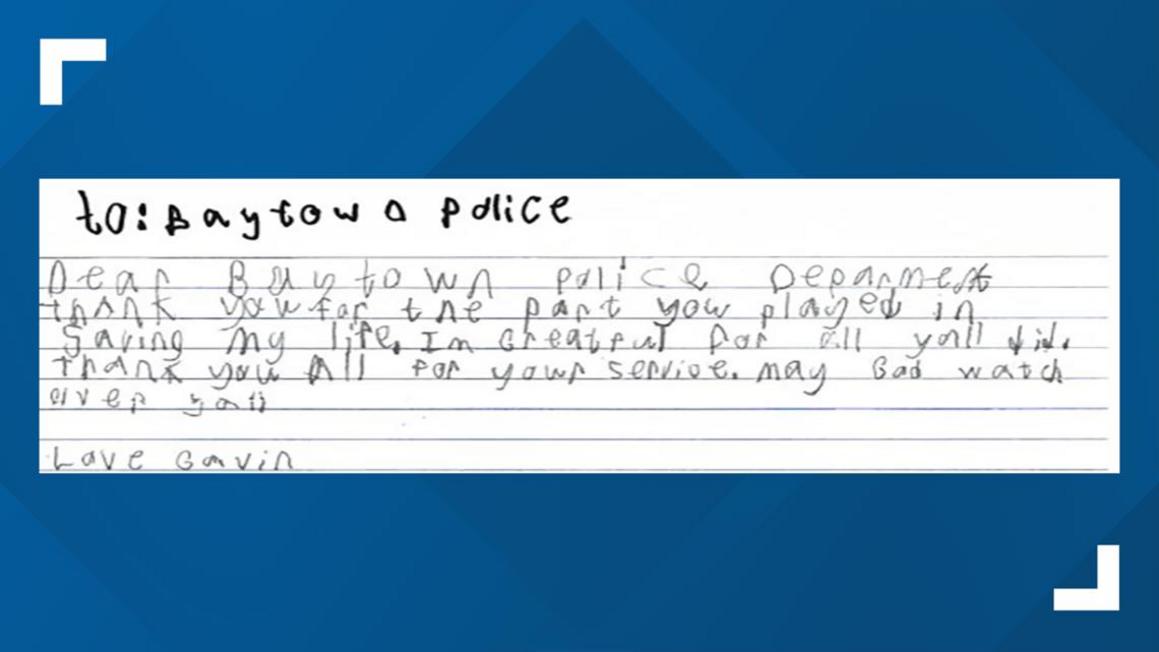 to: Baytown Police
Dear Baytown police Deparment
thank you for the part you played in
Saving my life. Im Greatful for all yall did.
Thank you All for your service. may God watch
over yall
Love Gavin